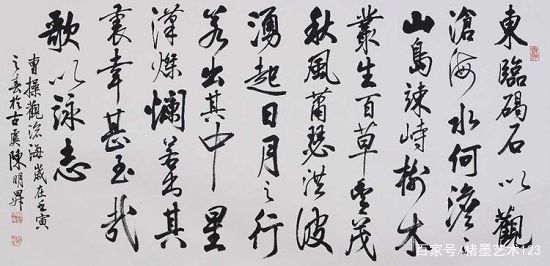 東臨碣石以觀
滄海水何澹々
山島竦峙樹木
叢生百草豐茂
秋風蕭瑟洪波
湧起日月之行
若出其中星
漢燦爛若出其
裏幸甚至哉
歌以詠志
曹操觀滄海歲在壬寅
之春於古陳明昇
百家号/楮墨艺术123